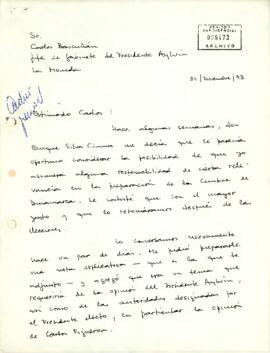 Sr.
Carlos Bascuñán
Jefe de Gabinete del Presidente Aylwin
La Moneda
PERIODO
PRESIDENCIAL
008472
ARCHIVO
31/Diciembre/93
Estimado Carlos :
Hace algunas semanas, don
Enrique Silva Cimma me decía que le parecía
oportuno considerar la posibilidad de que yo
asumiera alguna responsabilidad de cierta rele-
vancia en la preparación de la Cumbre de
Dinamarca. Le contesté que con el mayor
gusto y que lo retomáramos después de las
elecciones.
Lo conversamos nuevamente
hace un par de días. Me pidió prepararle
una nota explicativa – que es la que te
adjunto – y agregó que era un tema que
requeriría de la opinión del Presidente Aylwin,
así como de las autoridades designadas por
el Presidente electo, en particular la opinión
de Carlos Figueroa.